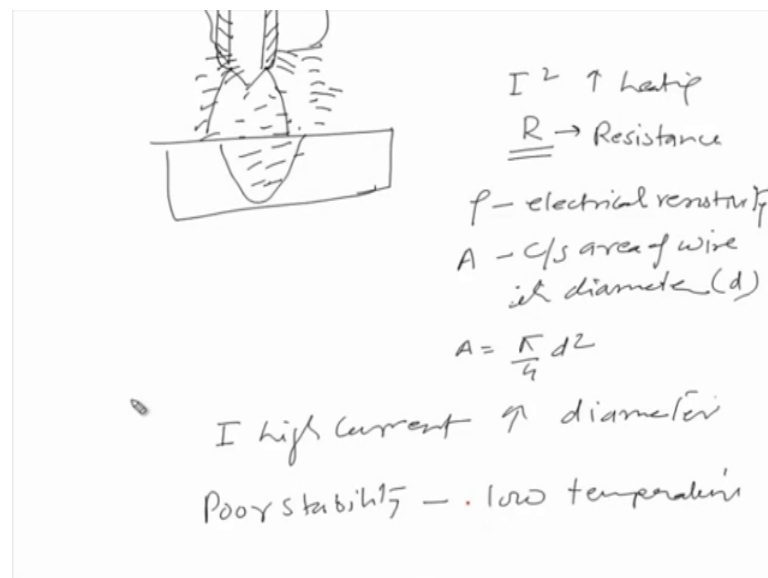 I² ↑ heating
R → Resistance
ρ – electrical resistivity
A – c/s area of wire
its diameter (d)
A = π/4 d²
I high current ↑ diameter
Poor stability – low temperature